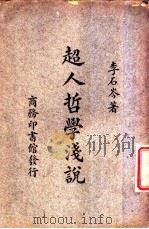 李石岑著
超人哲學淺說
商務印書館發行